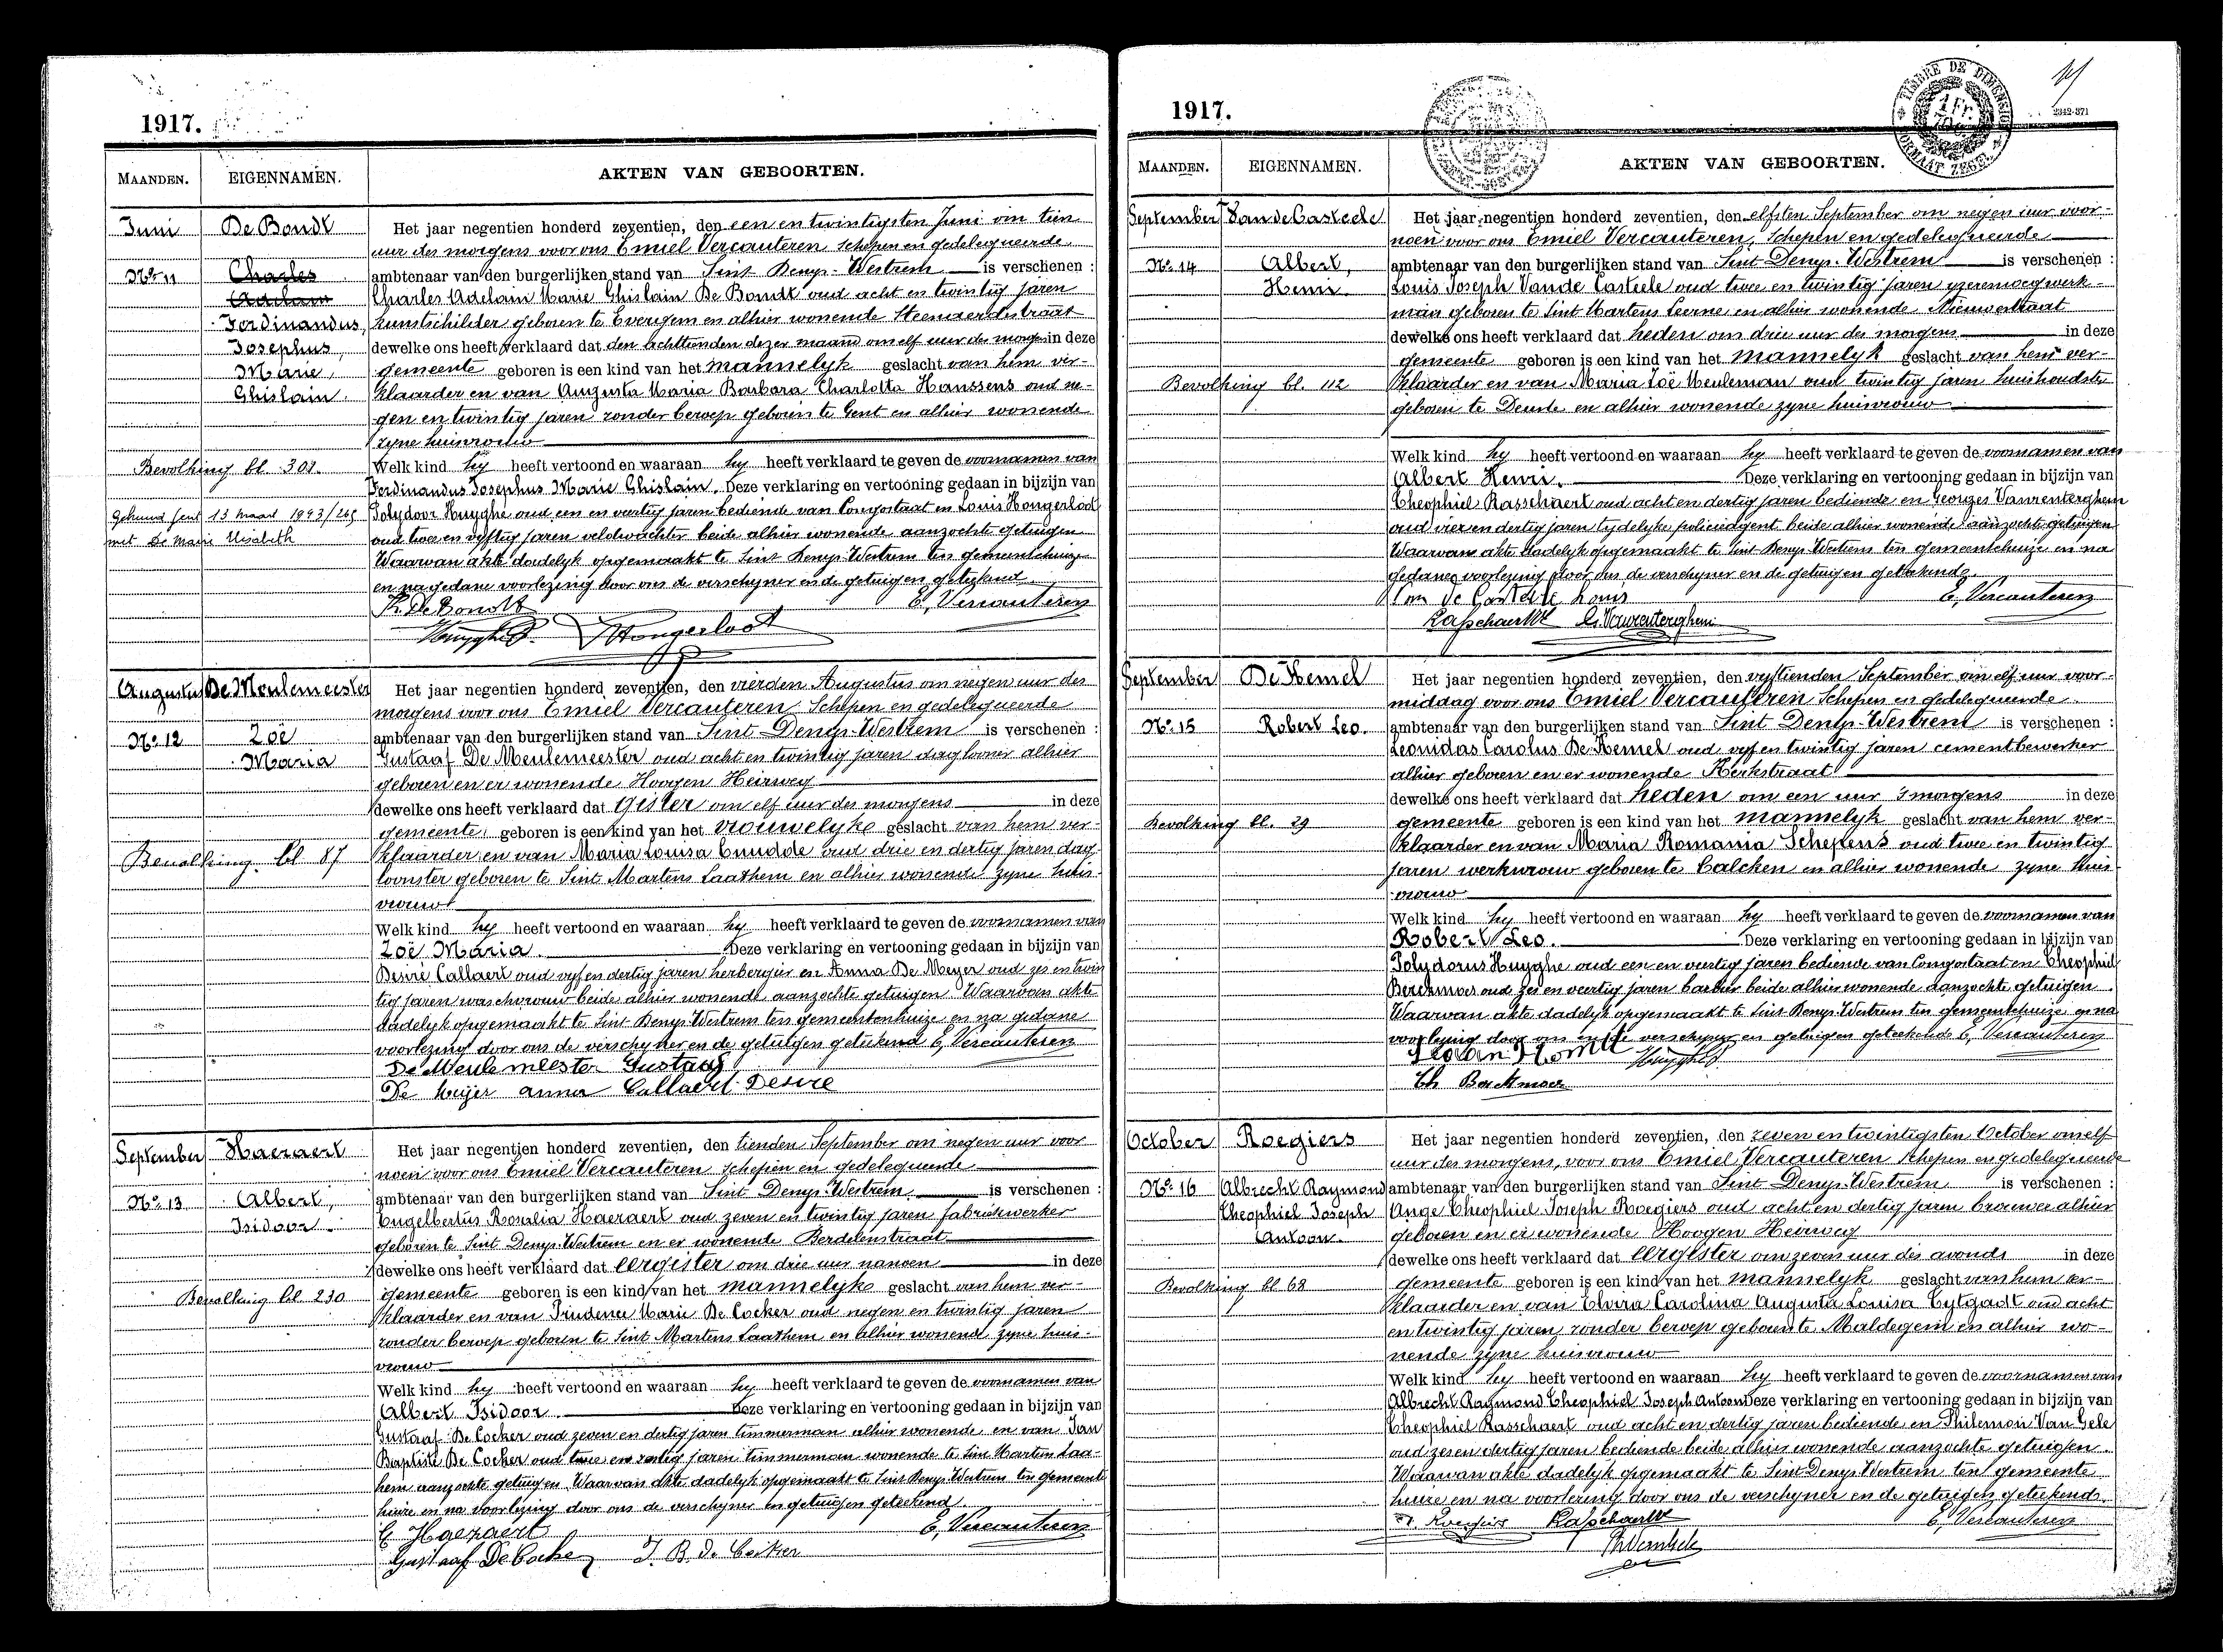 1917.
MAANDEN. EIGENNAMEN. AKTEN VAN GEBOORTEN.
Juni De Bondt Het jaar negentien honderd zeventien, den een en twintigsten Juni om tien
uur des morgens voor ons Emiel Vercauteren, Schepen en gedelegueerde
No 11 Charles ambtenaar van den burgerlijken stand van Sint Denys-Westrem is verschenen :
Adelain Charles Adelain Marie Ghislain De Bondt oud acht en twintig jaren
Ferdinandus, kunstschilder geboren te Evergem en alhier wonende Steenaerdstraat
Josephus, dewelke ons heeft verklaard dat den achttienden dezer maand om elf uur des morgens in deze
Marie, gemeente geboren is een kind van het mannelyk geslacht van hem ver-
Ghislain. klaarder en van Augusta Maria Barbara Charlotta Hanssens oud ne-
gen en twintig jaren zonder beroep geboren te Gent en alhier wonende
zyne huisvrouw
Bevolking bl. 302 Welk kind hy heeft vertoond en waaraan hy heeft verklaard te geven de voornamen van
Ferdinandus Josephus Marie Ghislain. Deze verklaring en vertooning gedaan in bijzijn van
Gehuwd Gent 13 maart 1943/265 Polydoor Huyghe oud een en veertig jaren bediende van Congostaat en Louis Hongerloot
met De Marie Elisabeth oud twee en vyftig jaren veldwachter beide alhier wonende aanzochte getuigen
Waarvan akte dadelyk opgemaakt te Sint Denys-Westrem ten gemeentehuize
en na gedane voorlezing door ons de verschyner en de getuigen geteekend.
E, Vercauteren
Hongerloot
Augustus De Meulemeester Het jaar negentien honderd zeventien, den vierden Augustus om negen uur des
morgens voor ons Emiel Vercauteren Schepen en gedelegueerde
No 12 Zoë ambtenaar van den burgerlijken stand van Sint Denys-Westrem is verschenen :
Maria Gustaaf De Meulemeester oud acht en twintig jaren daglooner alhier
geboren en er wonende Hoogen Heirweg
dewelke ons heeft verklaard dat gister om elf uur des morgens in deze
gemeente geboren is een kind van het vrouwelyke geslacht van hem ver-
Bevolking bl 87 klaarder en van Maria Louisa Cnudde oud drie en dertig jaren dag-
loonster geboren te Sint Martens Laathem en alhier wonende zyne huis-
vrouw
Welk kind hy heeft vertoond en waaraan hy heeft verklaard te geven de voornamen van
Zoë Maria. Deze verklaring en vertooning gedaan in bijzijn van
Desiré Callaert oud vyf en dertig jaren herbergier en Anna De Meyer oud zes en twin
tig jaren waschvrouw beide alhier wonende aanzochte getuigen Waarvan akte
dadelyk opgemaakt te Sint Denys-Westrem ten gemeentenhuize en na gedane
voorlezing door ons de verschyner en de getuigen geteekend E, Vercauteren
De Meulemeester Gustaaf
De Meijer anna Callaert Desire
September Haeraert Het jaar negentien honderd zeventien, den tienden September om negen uur voor
noen voor ons Emiel Vercauteren schepen en gedelegueerde
No 13 Albert, ambtenaar van den burgerlijken stand van Sint Denys-Westrem is verschenen :
Isidoor Engelbertus Rosalia Haeraert oud zeven en twintig jaren fabriekwerker
geboren te Sint Denys-Westrem en er wonende Berdelenstraat
dewelke ons heeft verklaard dat eergister om drie uur nanoen in deze
Bevolking bl 230 gemeente geboren is een kind van het mannelyke geslacht van hem ver-
klaarder en van Prudence Marie De Cocker oud negen en twintig jaren
zonder beroep geboren te Sint Martens Laathem en alhier wonend zyne huis-
vrouw
Welk kind hy heeft vertoond en waaraan hy heeft verklaard te geven de voornamen van
Albert Isidoor. Deze verklaring en vertooning gedaan in bijzijn van
Gustaaf De Cocker oud zeven en dertig jaren timmerman alhier wonende en van Jan
Baptiste De Cocker oud twee en zestig jaren timmerman wonende te Sint Martens Laa-
hem aanzochte getuigen Waarvan akte dadelyk opgemaakt te Sint Denys-Westrem ten gemeente
huize en na voorlezing door ons de verschyner en getuigen geteekend.
E, Vercauteren
Gustaaf De Cocker J. B. de Cocker
1917.
TIMBRE DE DIMENSION
FORMAAT ZEGEL
2342-371
MAANDEN. EIGENNAMEN. AKTEN VAN GEBOORTEN.
September Van de Casteele Het jaar negentien honderd zeventien, den elfsten September om negen uur voor-
noen voor ons Emiel Vercauteren, Schepen en gedelegueerde
No 14 Albert, ambtenaar van den burgerlijken stand van Sint Denys-Westrem is verschenen :
Henri Louis Joseph Van de Casteele oud twee en twintig jaren yzerenwegwerk-
man geboren te Sint Martens Leerne en alhier wonende Nieuwstraat
dewelke ons heeft verklaard dat heden om drie uur des morgens in deze
gemeente geboren is een kind van het mannelyk geslacht van hem ver-
Bevolking bl. 112 klaarder en van Maria Zoë Meuleman oud twintig jaren huishoudster
geboren te Deurle en alhier wonende zyne huisvrouw
Welk kind hy heeft vertoond en waaraan hy heeft verklaard te geven de voornamen van
Albert Henri. Deze verklaring en vertooning gedaan in bijzijn van
Theophiel Rasschaert oud acht en dertig jaren bediende en Georges Vanrenterghem
oud vier en dertig jaren tydelyke policieagent beide alhier wonende aanzochte getuigen
Waarvan akte dadelyk opgemaakt te Sint-Denys-Westrem ten gemeentehuize en na
gedane voorlezing door ons de verschyner en de getuigen geteekend
Van de Casteele Louis E, Vercauteren
Rasschaert G. Vanrenterghem
September De Hemel Het jaar negentien honderd zeventien, den vyftienden September om elf uur voor-
middag voor ons Emiel Vercauteren Schepen en gedelegueerde
No 15 Robert Leo. ambtenaar van den burgerlijken stand van Sint Denys-Westrem is verschenen :
Leonidas Carolus De Hemel oud vyf en twintig jaren cementbewerker
alhier geboren en er wonende Kerkstraat
dewelke ons heeft verklaard dat heden om een uur 's morgens in deze
Bevolking bl. 29 gemeente geboren is een kind van het mannelyk geslacht van hem ver-
klaarder en van Maria Romania Schepens oud twee en twintig
jaren werkvrouw geboren te Calcken en alhier wonende zyne huis-
vrouw
Welk kind hy heeft vertoond en waaraan hy heeft verklaard te geven de voornamen van
Robert Leo. Deze verklaring en vertooning gedaan in bijzijn van
Polydorus Huyghe oud een en veertig jaren bediende van Congostaat en Theophiel
oud zes en veertig jaren barbier beide alhier wonende aanzochte getuigen
Waarvan akte dadelyk opgemaakt te Sint Denys-Westrem ten gemeentehuize en na
voorlezing door ons en de verschyner en getuigen geteekend E, Vercauteren
October Roegiers Het jaar negentien honderd zeventien, den zeven en twintigsten October om elf
uur des morgens, voor ons Emiel Vercauteren schepen en gedelegueerde
No 16 Albrecht Raymond ambtenaar van den burgerlijken stand van Sint Denys-Westrem is verschenen :
Theophiel Joseph Ange Theophiel Joseph Roegiers oud acht en dertig jaren brouwer alhier
Antoon. geboren en er wonende Hoogen Heirweg
dewelke ons heeft verklaard dat eergister om zeven uur des avonds in deze
Bevolking bl 68 gemeente geboren is een kind van het mannelyk geslacht van hem ver-
klaarder en van Elvira Carolina Augusta Louisa Cytgadt oud acht
en twintig jaren zonder beroep geboren te Maldegem en alhier wo-
nende zyne huisvrouw
Welk kind hy heeft vertoond en waaraan hy heeft verklaard te geven de voornamen van
Albrecht Raymond Theophiel Joseph Antoon Deze verklaring en vertooning gedaan in bijzijn van
Theophiel Rasschaert oud acht en dertig jaren bediende en Philemon Van Gele
oud zes en dertig jaren bediende beide alhier wonende aanzochte getuigen.
Waarvan akte dadelyk opgemaakt te Sint-Denys-Westrem ten gemeente
huize en na voorlezing door ons de verschyner en de getuigen geteekend.
Roegiers Rasschaert E, Vercauteren